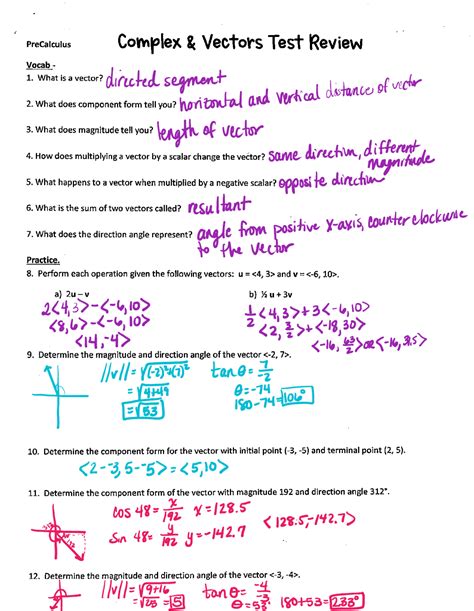 PreCalculus
Complex & Vectors Test Review
Vocab -
1. What is a vector? directed segment
2. What does component form tell you? horizontal and vertical distance of vector
3. What does magnitude tell you? length of vector
4. How does multiplying a vector by a scalar change the vector? same direction, different magnitude
5. What happens to a vector when multiplied by a negative scalar? opposite direction
6. What is the sum of two vectors called? resultant
7. What does the direction angle represent? angle from positive x-axis, counter clockwise
to the vector
Practice.
8. Perform each operation given the following vectors: u = <4, 3> and v = <-6, 10>.
a) 2u – v
b) ½ u + 3v
2<4,3>-<-6,10>
<8,6>-<-6,10>
<14,-4>
1/2<4,3>+3<-6,10>
<2, 3/2>+<-18,30>
<-16, 63/2> or <-16, 31.5>
9. Determine the magnitude and direction angle of the vector <-2, 7>.
||v||=√(-2)²+(7)²
=√4+49
=√53
tanθ=7/-2
θ=-74
180-74=106°
10. Determine the component form for the vector with initial point (-3, -5) and terminal point (2, 5).
<2--3, 5--5>=<5,10>
11. Determine the component form of the vector with magnitude 192 and direction angle 312°.
cos 48=x/192 x=128.5
sin 48=y/192 y=-142.7
<128.5,-142.7>
12. Determine the magnitude and direction angle of the vector <-3, -4>.
||v||=√9+16
=√25=5
tanθ=-4/-3
θ=53
180+53=233°